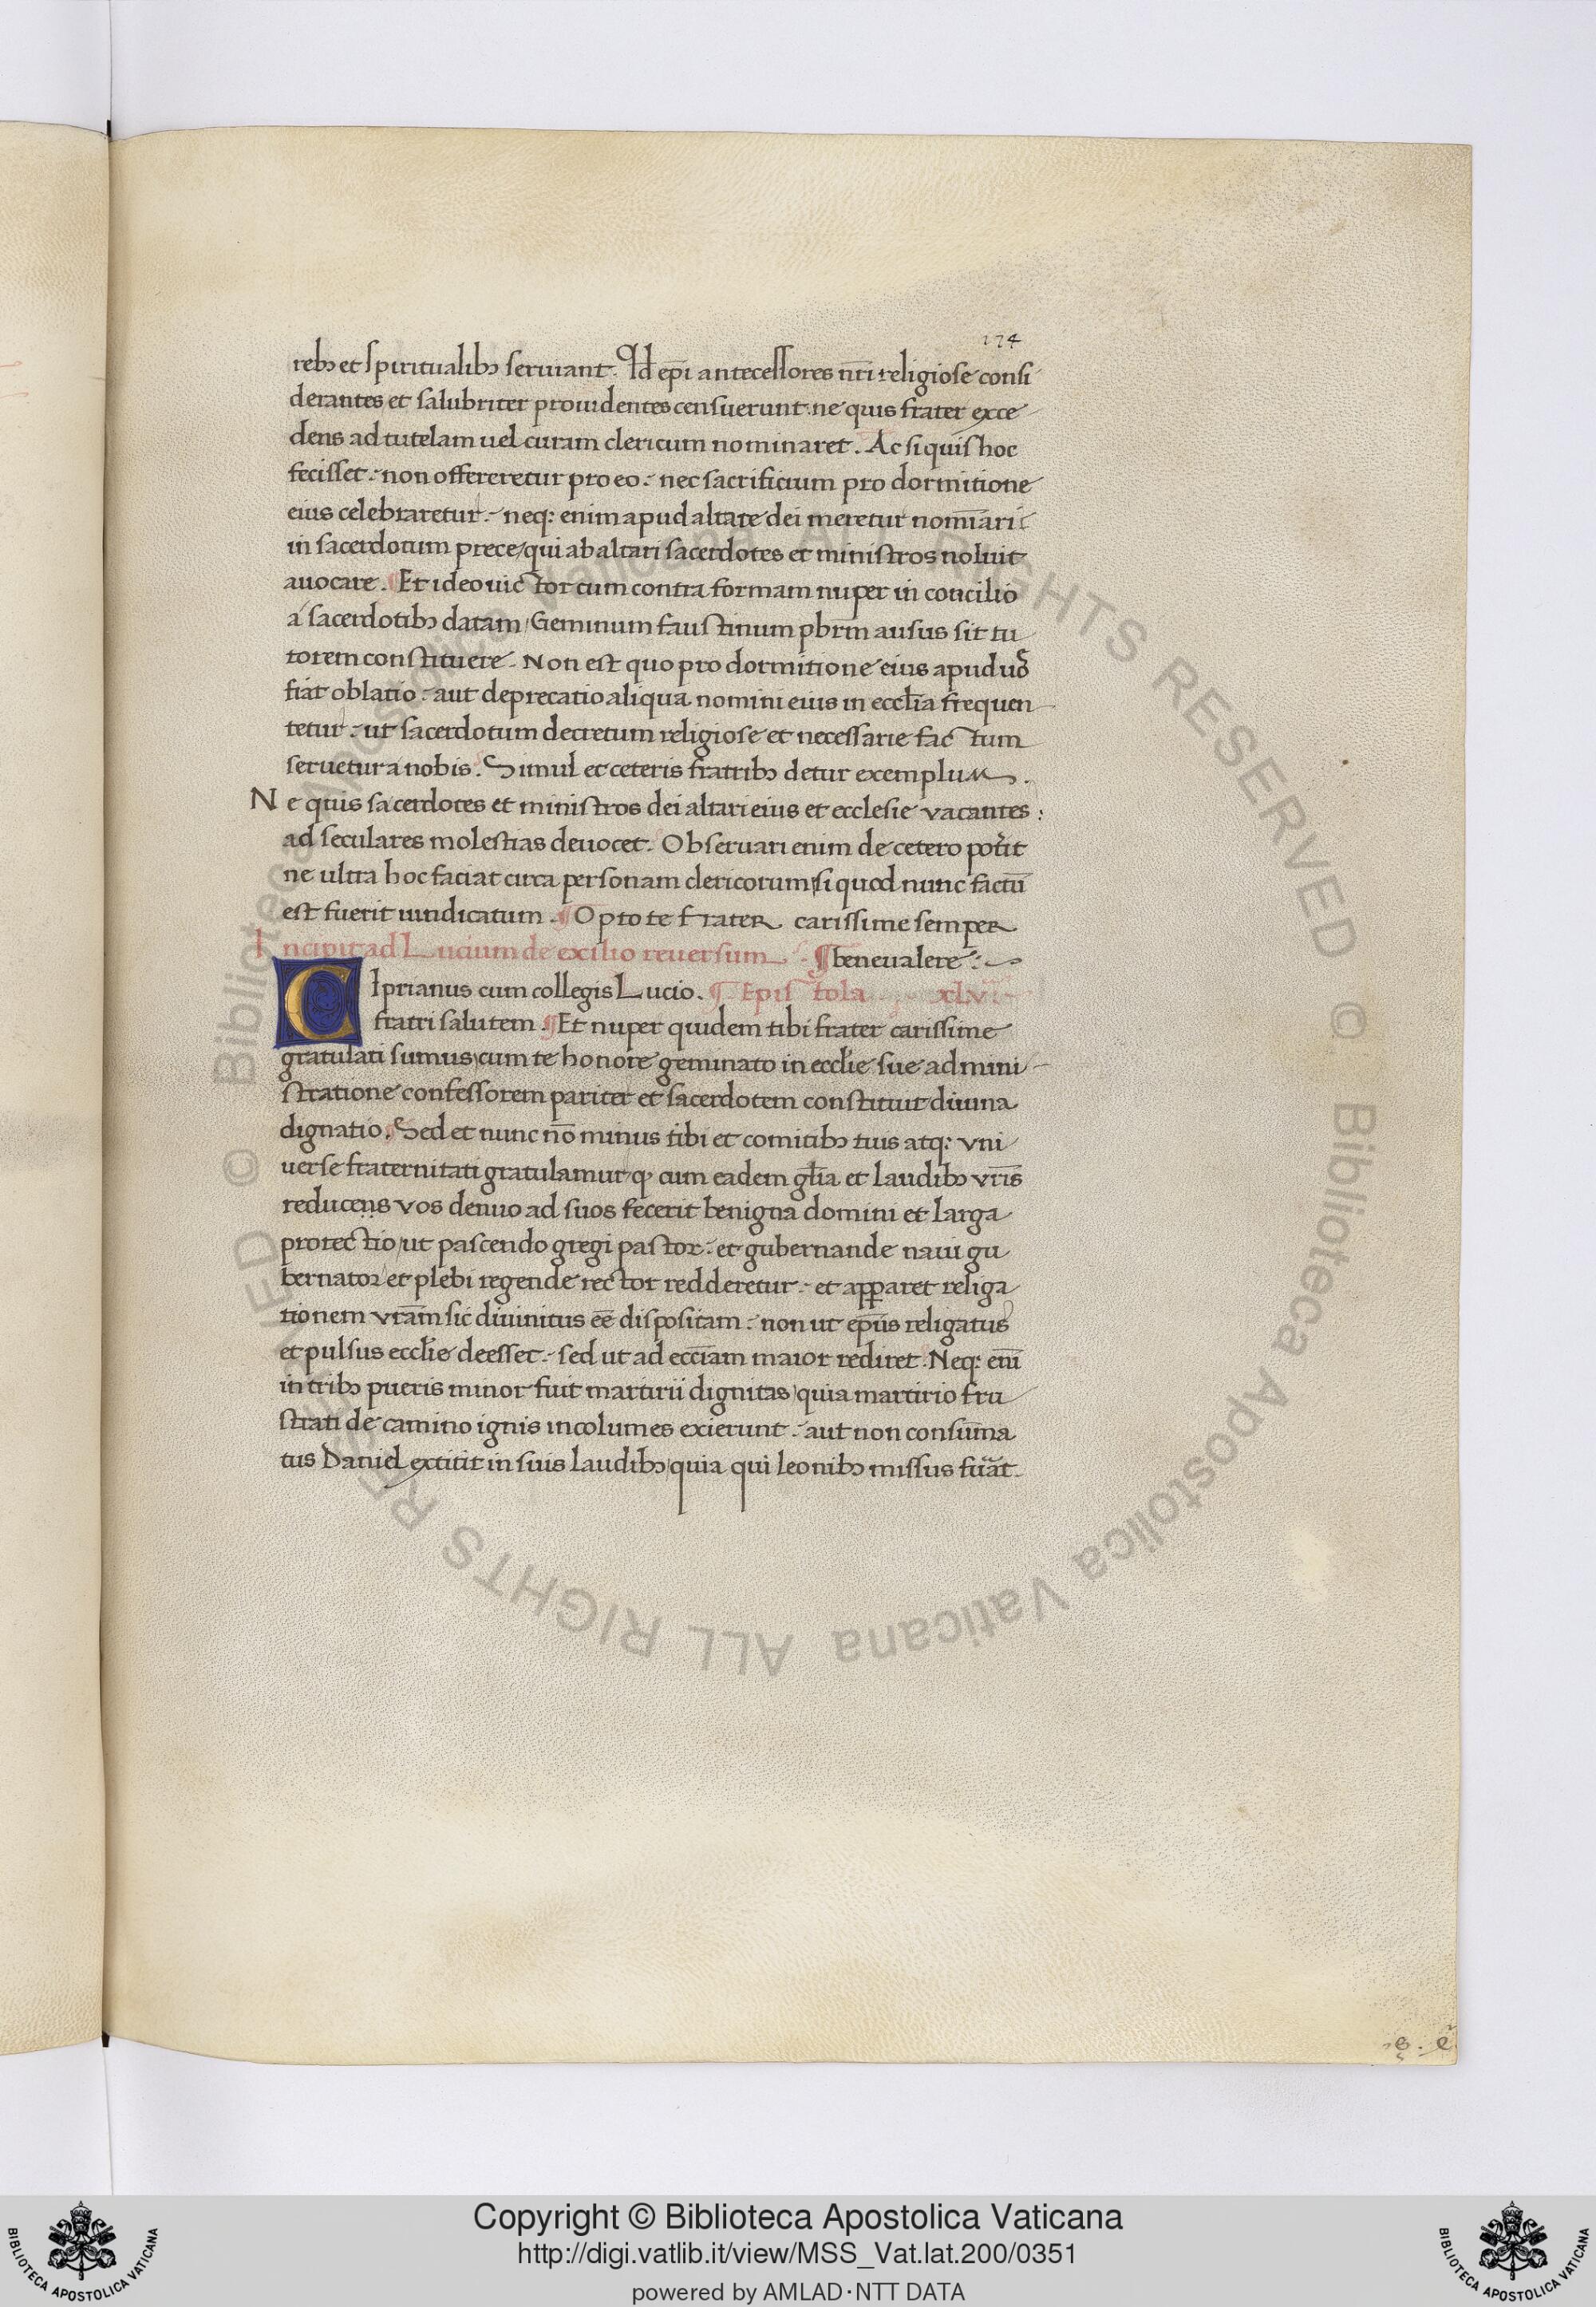 174
rebꝫ et spiritualibꝫ seruiant. Id ep̄i antecessores nr̄i religiose consi
derantes et salubriter prouidentes censuerunt. ne quis frater exce
dens ad tutelam uel curam clericum nominaret. Ac si quis hoc
fecisset. non offereretur pro eo. nec sacrificium pro dormitione
eius celebraretur. neq: enim apud altare dei meretur nomīari
in sacerdotum prece/qui ab altari sacerdotes et ministros noluit
auocare. ¶Et ideo uictor cum contra formam nuper in concilio
a sacerdotibꝫ datam/Geminum faustinum pbr̄m ausus sit tu
torem constituere. Non est quo pro dormitione eius apud uō
fiat oblatio. aut deprecatio aliqua nomini eius in eccl̄ia frequen
tetur. ut sacerdotum decretum religiose et necessarie factum
seruetur a nobis. Simul et ceteris fratribꝫ detur exemplum.
Ne quis sacerdotes et ministros dei altari eius et ecclesie vacantes:
ad seculares molestias deuocet. Obseruari enim de cetero pot̄it
ne ultra hoc faciat circa personam clericorum/si quod nunc factū
est fuerit uindicatum. ¶Opto te frater carissime semper
Incipit ad Lucium de exilio reuersum. ¶bene ualere.
CIprianus cum collegis Lucio. ¶Epistola xlvii
fratri salutem. ¶Et nuper quidem tibi frater carissime
gratulati sumus/cum te honore geminato in eccl̄ie sue admini
stratione confessorem pariter et sacerdotem constituit diuina
dignatio. Sed et nunc nō minus tibi et comitibꝫ tuis atq: vni
uerse fraternitati gratulamur/ꝙ cum eadem gl̄ia et laudibꝫ vr̄is
reducens vos denuo ad suos fecerit benigna domini et larga
protectio/ut pascendo gregi pastor. et gubernande naui gu
bernator et plebi regende rector redderetur. et apparet religa
tionem vr̄am sic diuinitus eē dispositam. non ut ep̄us religatus
et pulsus eccl̄ie deesset. sed ut ad ecc̄iam maior rediret. Neq: eni̅
in tribꝫ pueris minor fuit martirii dignitas/quia martirio fru
strati de camino ignis incolumes exierunt. aut non consum̄a
tus Daniel extitit in suis laudibꝫ/quia qui leonibꝫ missus fūat
© Biblioteca Apostolica Vaticana ALL RIGHTS RESERVED © Biblioteca Apostolica Vaticana ALL RIGHTS RESERVED
Copyright © Biblioteca Apostolica Vaticana
http://digi.vatlib.it/view/MSS_Vat.lat.200/0351
powered by AMLAD·NTT DATA
BIBLIOTECA APOSTOLICA VATICANA
BIBLIOTECA APOSTOLICA VATICANA